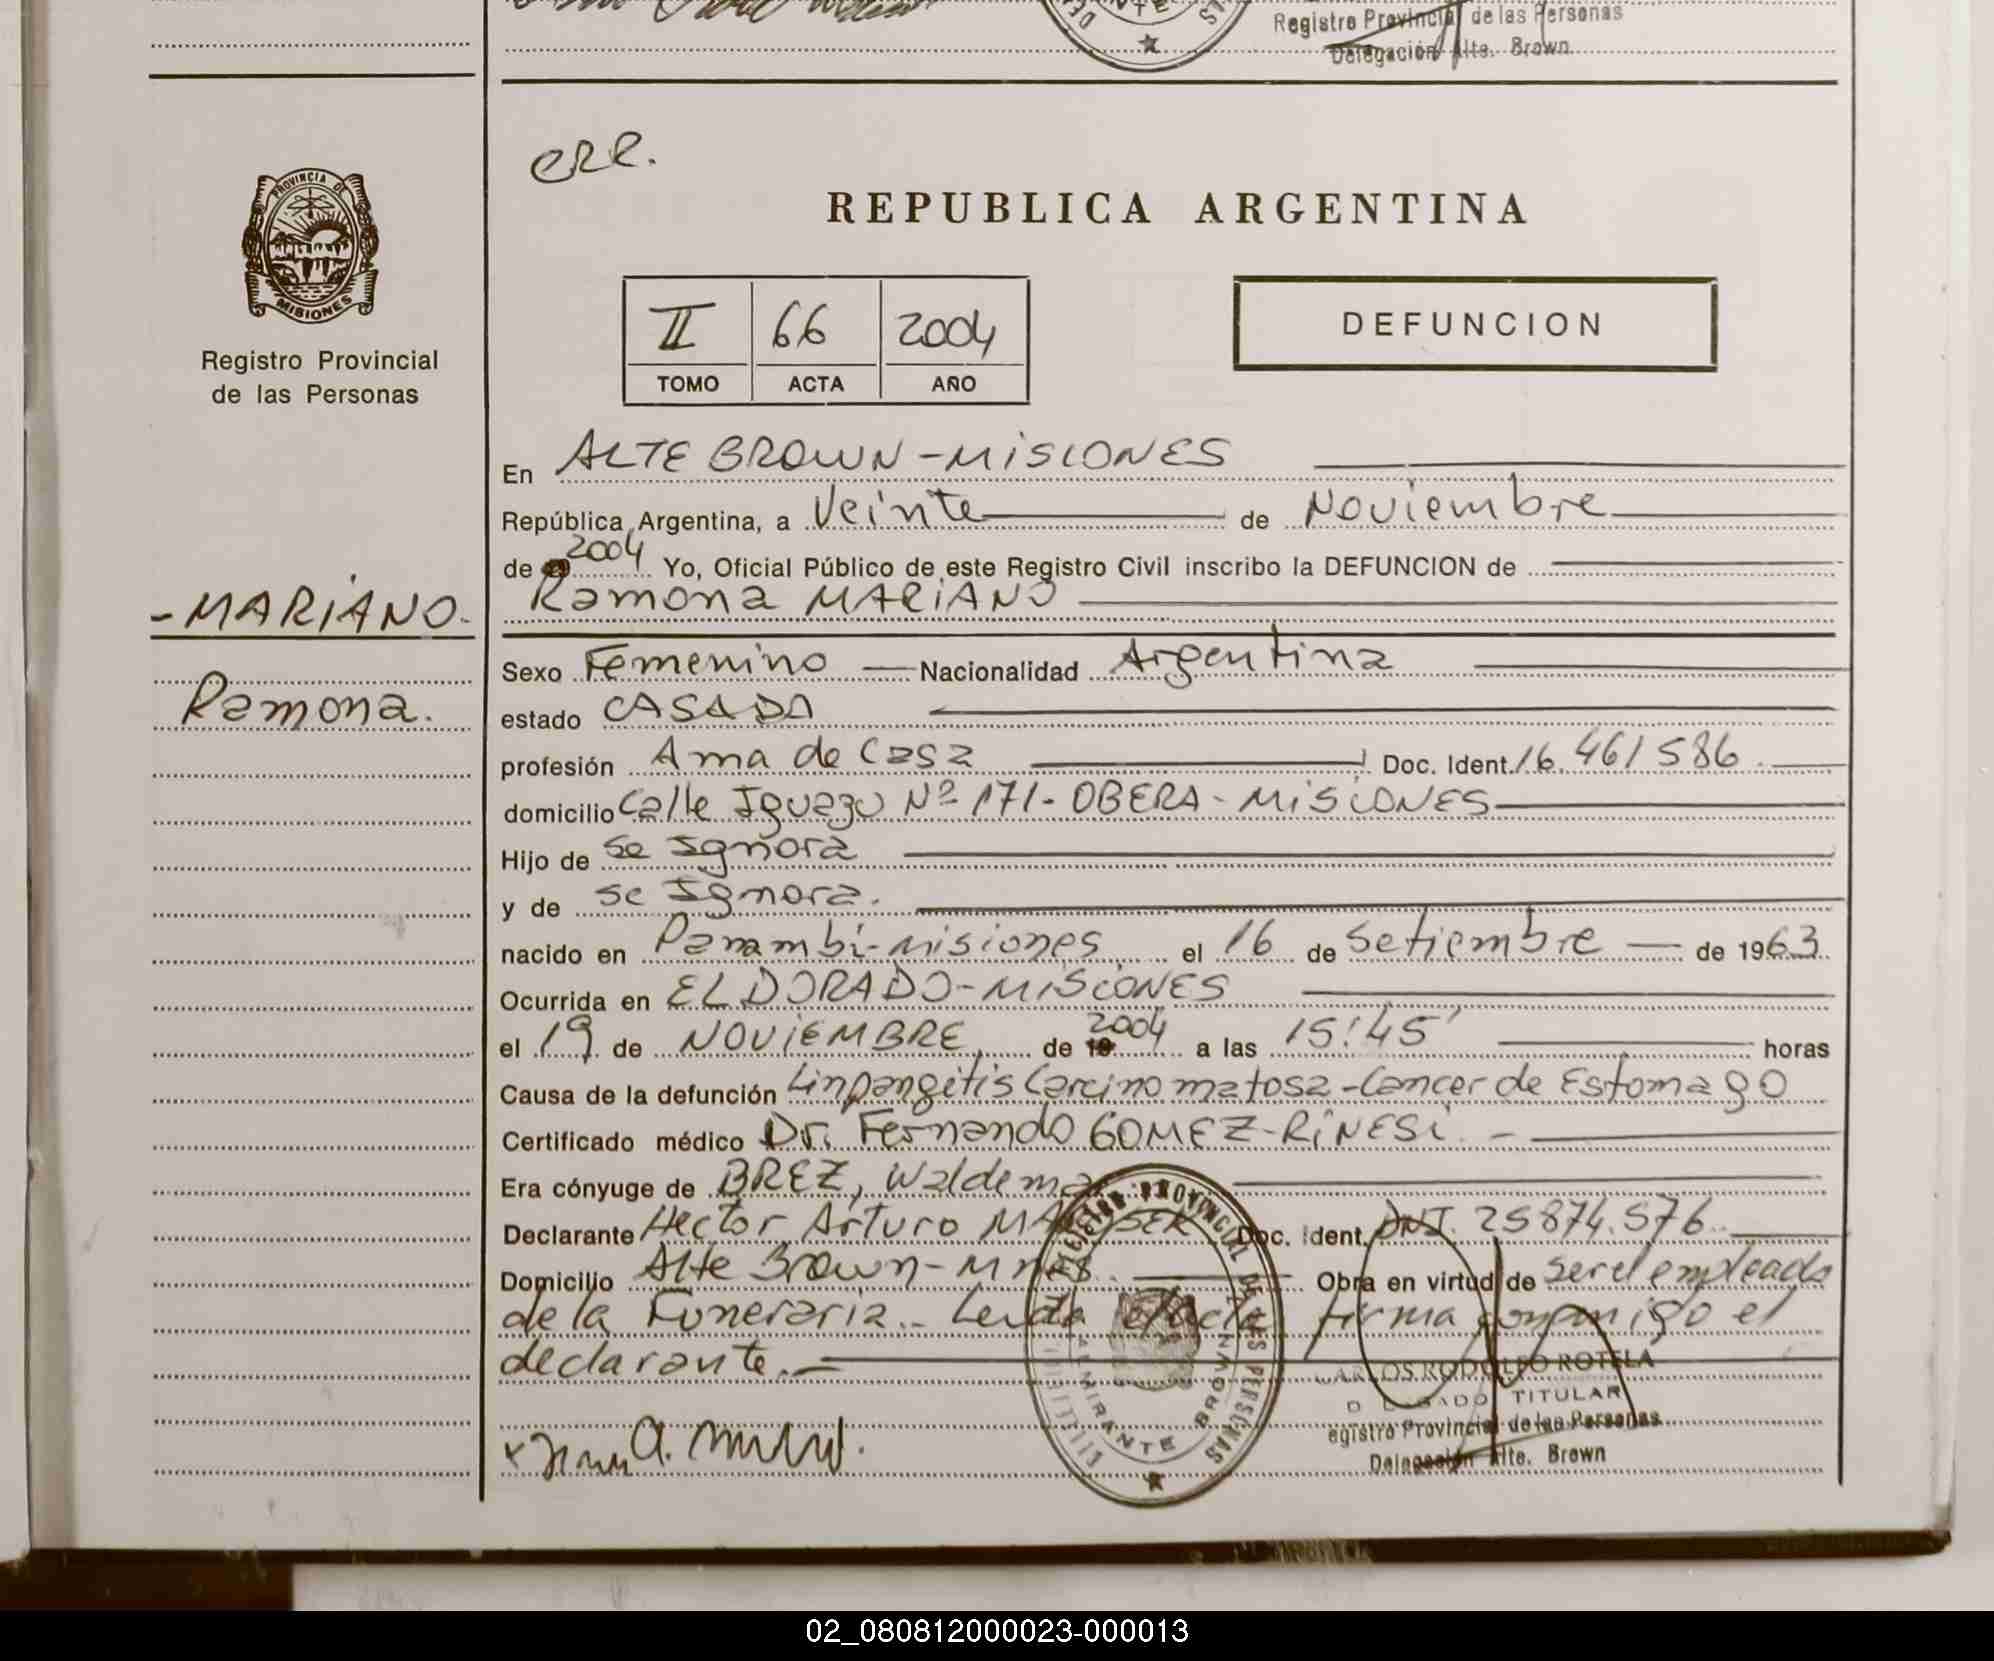 Registro Provincial de las Personas
Delegación Alte. Brown
PROVINCIA DE
MISIONES
Registro Provincial
de las Personas
-MARIANO.
Ramona.
REPUBLICA ARGENTINA
II 66 2004
TOMO ACTA AÑO
DEFUNCION
En ALTE BROWN-MISIONES
República Argentina, a Veinte de Noviembre
de 2004 Yo, Oficial Público de este Registro Civil inscribo la DEFUNCION de
Ramona MARIANO
Sexo Femenino Nacionalidad Argentina
estado CASADA
profesión Ama de Casa Doc. Ident. 16.461586
domicilio Calle Iguazu Nº 171-OBERA-MISIONES
Hijo de se Ignora
y de se Ignora.
nacido en Panambi-Misiones el 16 de Setiembre de 1963
Ocurrida en ELDORADO-MISIONES
el 19 de NOVIEMBRE de 2004 a las 15:45' horas
Causa de la defunción Linpangitis Carcinomatosa-Cancer de Estomago
Certificado médico Dr. Fernando GOMEZ-RINESI.-
Era cónyuge de BREZ, Waldema
Declarante Hector Arturo Doc. Ident. DNI. 25874.576
Domicilio Alte Brown-Mnes. Obra en virtud de ser el empleado
de la Funeraria.- Leida el acta firma conmigo el
declarante.-
CARLOS RODOLFO ROTELA
DELEGADO TITULAR
Registro Provincial de las Personas
Delegación Alte. Brown
DIRECCION PROVINCIAL DE LAS PERSONAS
ALMIRANTE BROWN
02_080812000023-000013